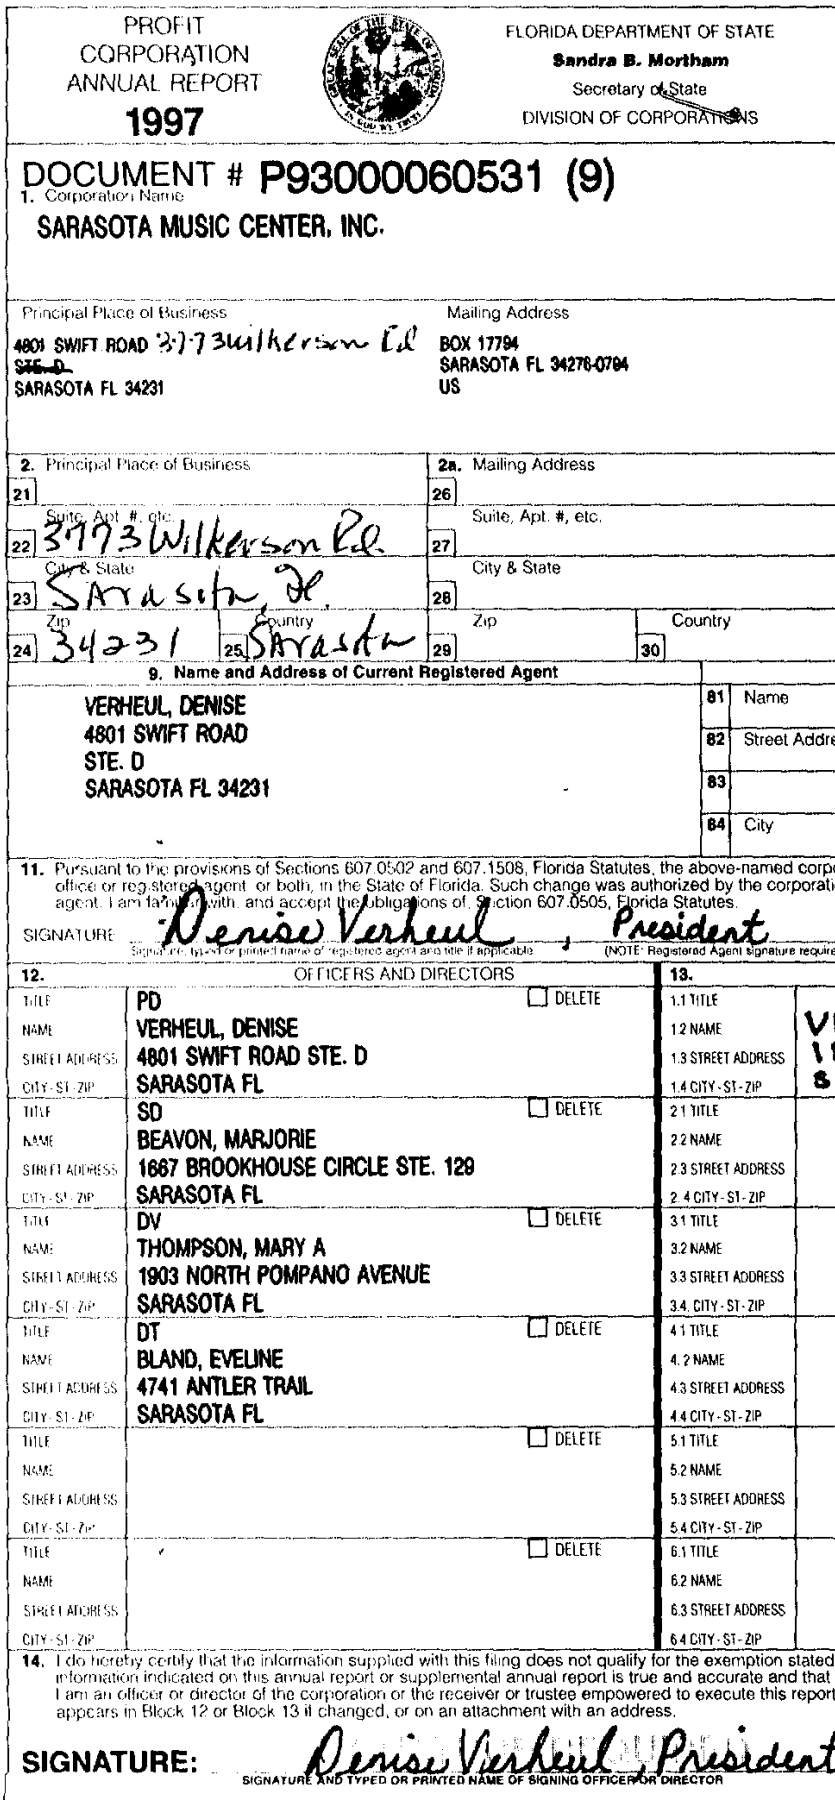 PROFIT
CORPORATION
ANNUAL REPORT
1997
GREAT SEAL OF THE STATE OF FLORIDA
IN GOD WE TRUST
FLORIDA DEPARTMENT OF STATE
Sandra B. Mortham
Secretary of State
DIVISION OF CORPORATIONS
DOCUMENT # P93000060531 (9)
1. Corporation Name
SARASOTA MUSIC CENTER, INC.
Principal Place of Business
Mailing Address
4801 SWIFT ROAD 3773 Wilkerson Rd
STE. D
SARASOTA FL 34231
BOX 17794
SARASOTA FL 34276-0794
US
2. Principal Place of Business
2a. Mailing Address
21
26
Suite, Apt. #, etc.
22 3773 Wilkerson Rd.
Suite, Apt. #, etc.
27
City & State
23 Sarasota, Fl.
City & State
28
Zip
24 34231
Country
25 Sarasota
Zip
29
Country
30
9. Name and Address of Current Registered Agent
VERHEUL, DENISE
4801 SWIFT ROAD
STE. D
SARASOTA FL 34231
81 Name
82 Street Addre
83
84 City
11. Pursuant to the provisions of Sections 607.0502 and 607.1508, Florida Statutes, the above-named corpo
office or registered agent, or both, in the State of Florida. Such change was authorized by the corporati
agent. I am familiar with, and accept the obligations of, Section 607.0505, Florida Statutes.
SIGNATURE Denise Verheul, President
Signature, typed or printed name of registered agent and title if applicable. (NOTE: Registered Agent signature require
12. OFFICERS AND DIRECTORS
13.
TITLE PD DELETE
NAME VERHEUL, DENISE
STREET ADDRESS 4801 SWIFT ROAD STE. D
CITY-ST-ZIP SARASOTA FL
1.1 TITLE
1.2 NAME
1.3 STREET ADDRESS
1.4 CITY-ST-ZIP
TITLE SD DELETE
NAME BEAVON, MARJORIE
STREET ADDRESS 1667 BROOKHOUSE CIRCLE STE. 129
CITY-ST-ZIP SARASOTA FL
2.1 TITLE
2.2 NAME
2.3 STREET ADDRESS
2.4 CITY-ST-ZIP
TITLE DV DELETE
NAME THOMPSON, MARY A
STREET ADDRESS 1903 NORTH POMPANO AVENUE
CITY-ST-ZIP SARASOTA FL
3.1 TITLE
3.2 NAME
3.3 STREET ADDRESS
3.4. CITY-ST-ZIP
TITLE DT DELETE
NAME BLAND, EVELINE
STREET ADDRESS 4741 ANTLER TRAIL
CITY-ST-ZIP SARASOTA FL
4.1 TITLE
4.2 NAME
4.3 STREET ADDRESS
4.4 CITY-ST-ZIP
TITLE DELETE
NAME
STREET ADDRESS
CITY-ST-ZIP
5.1 TITLE
5.2 NAME
5.3 STREET ADDRESS
5.4 CITY-ST-ZIP
TITLE DELETE
NAME
STREET ADDRESS
CITY-ST-ZIP
6.1 TITLE
6.2 NAME
6.3 STREET ADDRESS
6.4 CITY-ST-ZIP
14. I do hereby certify that the information supplied with this filing does not qualify for the exemption stated
information indicated on this annual report or supplemental annual report is true and accurate and that
I am an officer or director of the corporation or the receiver or trustee empowered to execute this report
appears in Block 12 or Block 13 if changed, or on an attachment with an address.
SIGNATURE: Denise Verheul, President
SIGNATURE AND TYPED OR PRINTED NAME OF SIGNING OFFICER OR DIRECTOR